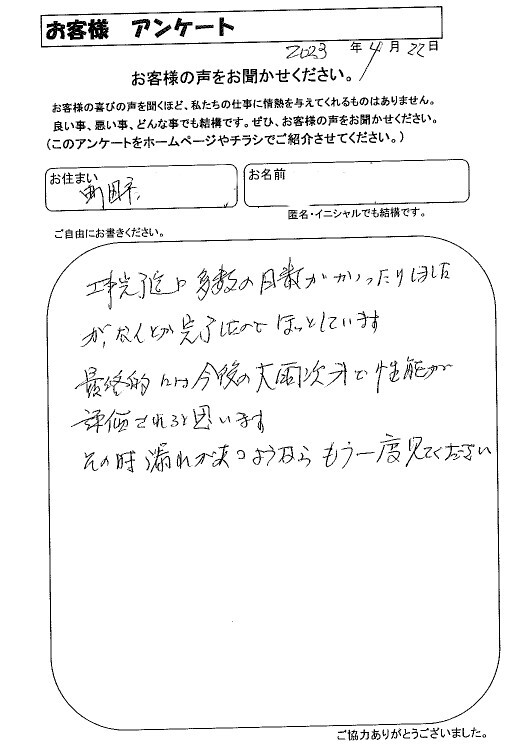 お客様 アンケート
2023 年 4 月 22 日
お客様の声をお聞かせください。
お客様の喜びの声を聞くほど、私たちの仕事に情熱を与えてくれるものはありません。
良い事、悪い事、どんな事でも結構です。ぜひ、お客様の声をお聞かせください。
（このアンケートをホームページやチラシでご紹介させてください。）
お住まい 町田市
お名前
匿名・イニシャルでも結構です。
ご自由にお書きください。
工事完了迄に多数の日数がかかったりしました
が、なんとか完了したのでほっとしています
最終的には今後の大雨次第で性能が
評価されると思います
その時漏れがあるようなら もう一度見てください
ご協力ありがとうございました。